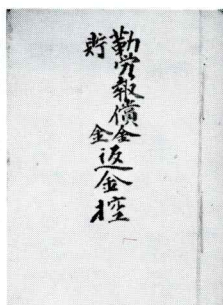 勤労報償金
貯金
返金控